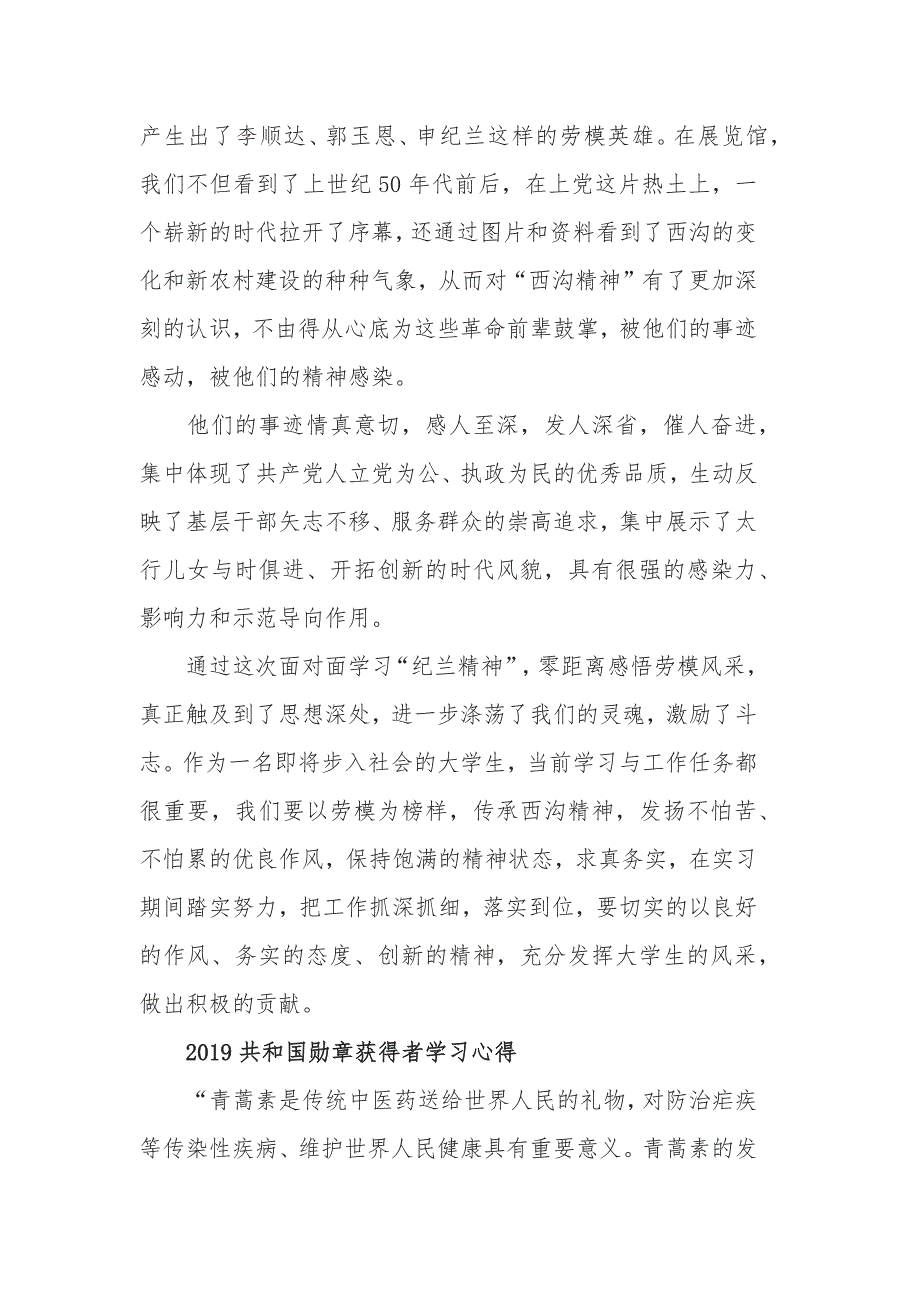 产生出了李顺达、郭玉恩、申纪兰这样的劳模英雄。在展览馆，
我们不但看到了上世纪 50 年代前后，在上党这片热土上，一
个崭新的时代拉开了序幕，还通过图片和资料看到了西沟的变
化和新农村建设的种种气象，从而对“西沟精神”有了更加深
刻的认识，不由得从心底为这些革命前辈鼓掌，被他们的事迹
感动，被他们的精神感染。
他们的事迹情真意切，感人至深，发人深省，催人奋进，
集中体现了共产党人立党为公、执政为民的优秀品质，生动反
映了基层干部矢志不移、服务群众的崇高追求，集中展示了太
行儿女与时俱进、开拓创新的时代风貌，具有很强的感染力、
影响力和示范导向作用。
通过这次面对面学习“纪兰精神”，零距离感悟劳模风采，
真正触及到了思想深处，进一步涤荡了我们的灵魂，激励了斗
志。作为一名即将步入社会的大学生，当前学习与工作任务都
很重要，我们要以劳模为榜样，传承西沟精神，发扬不怕苦、
不怕累的优良作风，保持饱满的精神状态，求真务实，在实习
期间踏实努力，把工作抓深抓细，落实到位，要切实的以良好
的作风、务实的态度、创新的精神，充分发挥大学生的风采，
做出积极的贡献。
2019 共和国勋章获得者学习心得
“青蒿素是传统中医药送给世界人民的礼物，对防治疟疾
等传染性疾病、维护世界人民健康具有重要意义。青蒿素的发